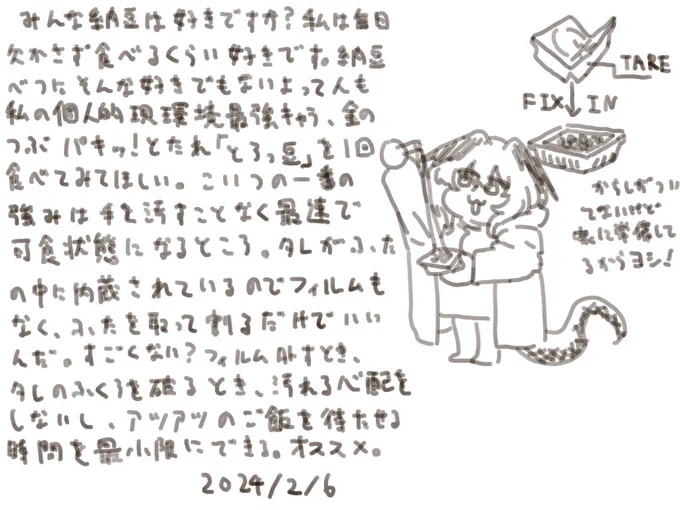 みんな納豆は好きですか?私は毎日
欠かさず食べるくらい好きです。納豆
べつにそんな好きでもないよって人も
私の個人的現環境最強キャラ、金の
つぶ パキッ!とたれ「とろっ豆」を1回
食べてみてほしい。こいつの一番の
強みは手を汚すことなく最速で
可食状態になるところ。タレがふた
の中に内蔵されているのでフィルムも
なく、ふたを取って割るだけでいい
んだ。すごくない?フィルム外すとき、
タレのふくろを破るとき、汚れる心配を
しないし、アツアツのご飯を待たせる
時間を最小限にできる。オススメ。
2024/2/6
TARE
FIX IN
からしがつい
てないけど
家に常備して
るからヨシ!